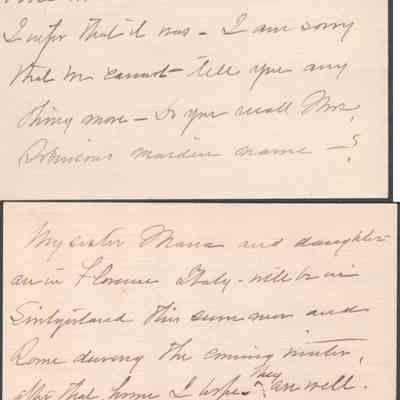 I infer that it was - I am sorry
that we cannot tell you any
thing more - Do you recall Mrs.
Robinsons maiden name - ?
My sister Maria and daughter
are in Florence Italy - will be in
Switzerland this summer and
Rome during the coming winter,
after that home I hope. They are well.